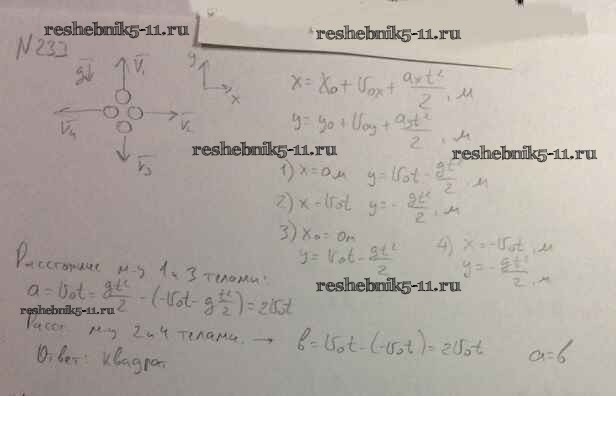 reshebnik5-11.ru
reshebnik5-11.ru
N 233
g V₁ y x
V₄ V₂
V₃
x = x₀ + v₀ₓ + aₓt²/2, м
y = y₀ + v₀y + ayt²/2, м
reshebnik5-11.ru
reshebnik5-11.ru
1) x = 0 м y = v₀t - gt²/2, м
2) x = v₀t y = - gt²/2, м
3) x₀ = 0 м
y = v₀t - gt²/2
4) x = -v₀t, м
y = - gt²/2, м
Расстояние м-у 1 и 3 телами:
a = v₀t = gt²/2 - (-v₀t - g t²/2) = 2v₀t
reshebnik5-11.ru
reshebnik5-11.ru
Расс. м-у 2 и 4 телами. → b = v₀t - (-v₀t) = 2v₀t a = b
Ответ: квадрат